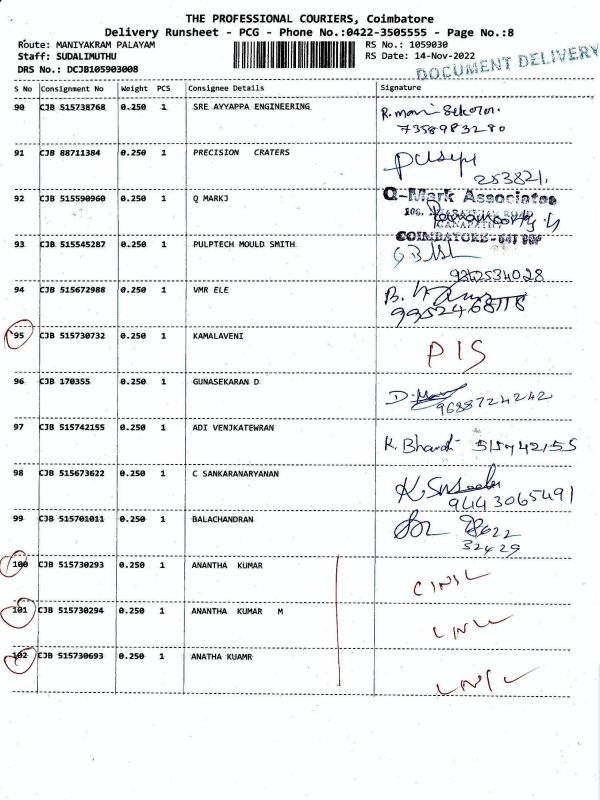 THE PROFESSIONAL COURIERS, Coimbatore
Delivery Runsheet - PCG - Phone No.:0422-3505555 - Page No.:8
Route: MANIYAKRAM PALAYAM RS No.: 1059030
Staff: SUDALIMUTHU RS Date: 14-Nov-2022
DRS No.: DCJB105903008 DOCUMENT DELIVERY
S No Consignment No Weight PCS Consignee Details Signature
90 CJB 515738768 0.250 1 SRE AYYAPPA ENGINEERING
7358983280
91 CJB 88711384 0.250 1 PRECISION CRATERS
253821
92 CJB 515590960 0.250 1 Q MARKJ Q-Mark Associates
93 CJB 515545287 0.250 1 PULPTECH MOULD SMITH COIMBATORE
94 CJB 515672988 0.250 1 VMR ELE
95 CJB 515730732 0.250 1 KAMALAVENI
PIS
96 CJB 170355 0.250 1 GUNASEKARAN D
9688724242
97 CJB 515742155 0.250 1 ADI VENJKATEWRAN
K. Bharat 515742155
98 CJB 515673622 0.250 1 C SANKARANARYANAN
9443065491
99 CJB 515701011 0.250 1 BALACHANDRAN
32429
100 CJB 515730293 0.250 1 ANANTHA KUMAR
101 CJB 515730294 0.250 1 ANANTHA KUMAR M
102 CJB 515730693 0.250 1 ANATHA KUAMR